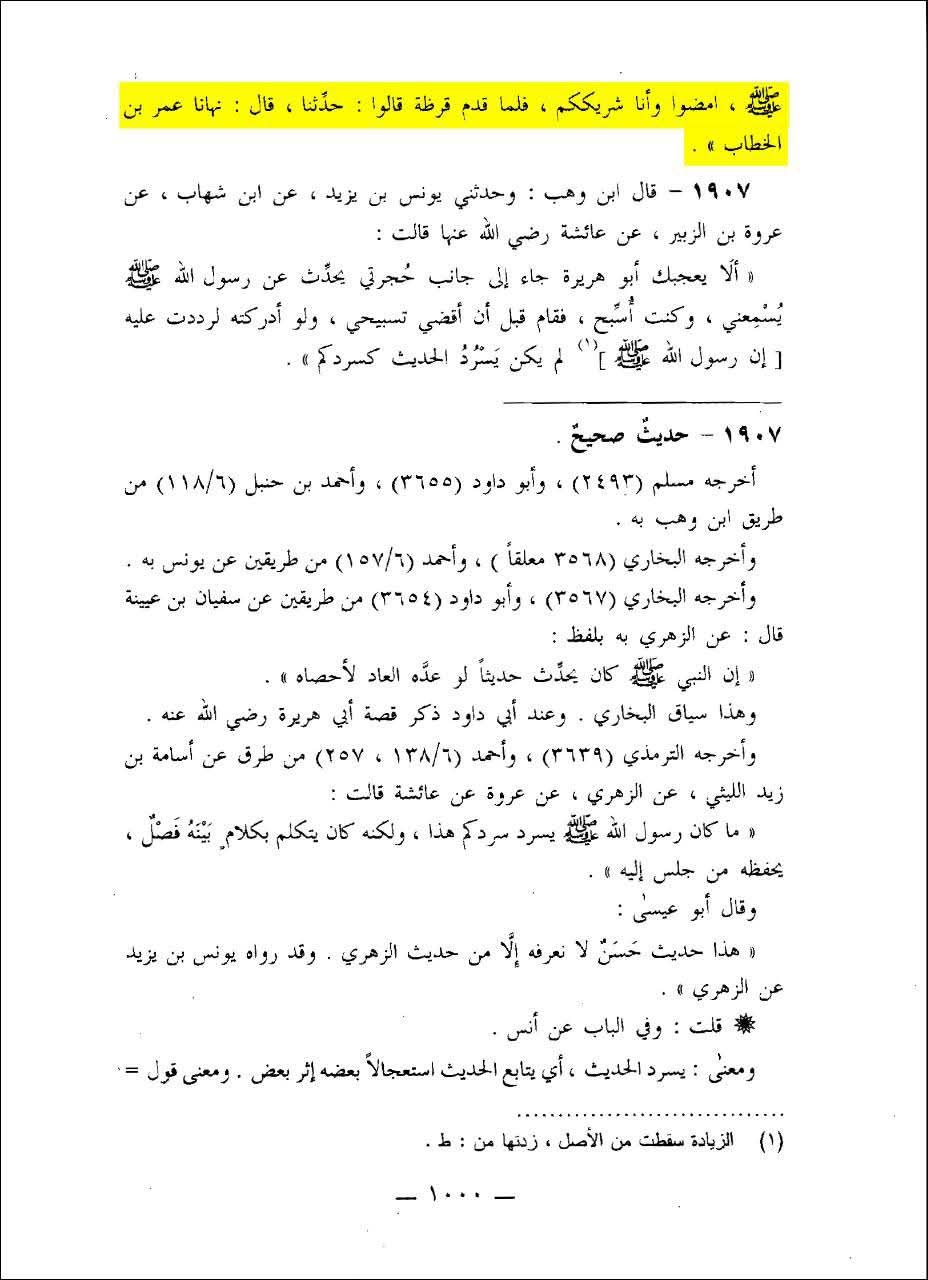 ﷺ ، امضوا وأنا شريككم ، فلما قدم قرظة قالوا : حدِّثنا ، قال : نهانا عمر بن
الخطاب » .
١٩٠٧ – قال ابن وهب : وحدثني يونس بن يزيد ، عن ابن شهاب ، عن
عروة بن الزبير ، عن عائشة رضي الله عنها قالت :
« ألَا يعجبك أبو هريرة جاء إلى جانب حُجرتي يحدِّث عن رسول الله ﷺ
يُسْمِعني ، وكنت أُسَبِّح ، فقام قبل أن أقضي تسبيحي ، ولو أدركته لرددت عليه
[ إن رسول الله ﷺ ]⁽١⁾ لم يكن يَسْرُدُ الحديث كسردكم » .
١٩٠٧ – حديثٌ صحيحٌ .
أخرجه مسلم (٢٤٩٣) ، وأبو داود (٣٦٥٥) ، وأحمد بن حنبل (١١٨/٦) من
طريق ابن وهب به .
وأخرجه البخاري (٣٥٦٨ معلقاً ) ، وأحمد (١٥٧/٦) من طريقين عن يونس به .
وأخرجه البخاري (٣٥٦٧) ، وأبو داود (٣٦٥٤) من طريقين عن سفيان بن عيينة
قال : عن الزهري به بلفظ :
« إن النبي ﷺ كان يحدِّث حديثاً لو عدَّه العاد لأحصاه » .
وهذا سياق البخاري . وعند أبي داود ذكر قصة أبي هريرة رضي الله عنه .
وأخرجه الترمذي (٣٦٣٩) ، وأحمد (١٣٨/٦ ، ٢٥٧) من طرق عن أسامة بن
زيد الليثي ، عن الزهري ، عن عروة عن عائشة قالت :
« ما كان رسول الله ﷺ يسرد سردكم هذا ، ولكنه كان يتكلم بكلامٍ بَيْنَهُ فَصْلٌ ،
يحفظه من جلس إليه » .
وقال أبو عيسىٰ :
« هذا حديث حَسَنٌ لا نعرفه إلَّا من حديث الزهري . وقد رواه يونس بن يزيد
عن الزهري » .
✸ قلت : وفي الباب عن أنس .
ومعنىٰ : يسرد الحديث ، أي يتابع الحديث استعجالاً بعضه إثر بعض . ومعنى قول =
(١) الزيادة سقطت من الأصل ، زدتها من : ط .
— ١٠٠٠ —